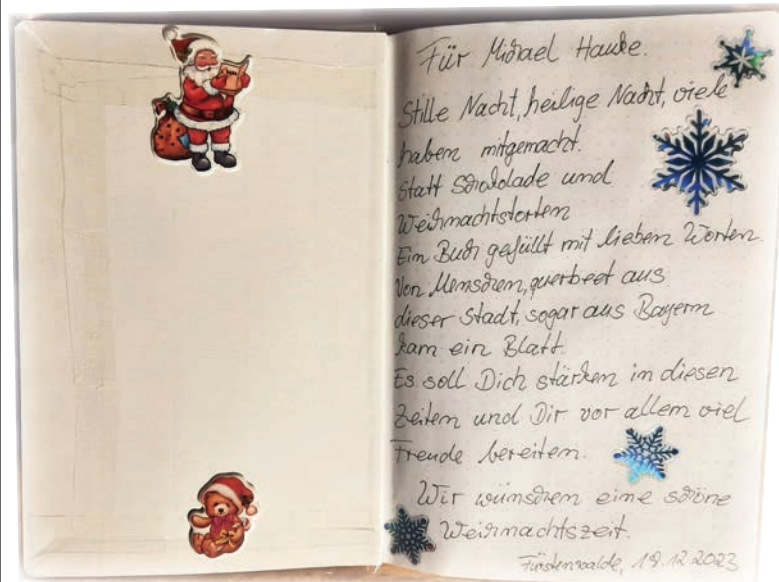 Für Michael Hauke.
Stille Nacht, heilige Nacht, viele
haben mitgemacht.
Statt Schokolade und
Weihnachtstorten
Ein Buch gefüllt mit lieben Worten.
Von Menschen, querbeet aus
dieser Stadt, sogar aus Bayern
kam ein Blatt.
Es soll Dich stärken in diesen
Zeiten und Dir vor allem viel
Freude bereiten.
Wir wünschen eine schöne
Weihnachtszeit.
Fürstenwalde, 19.12.2023